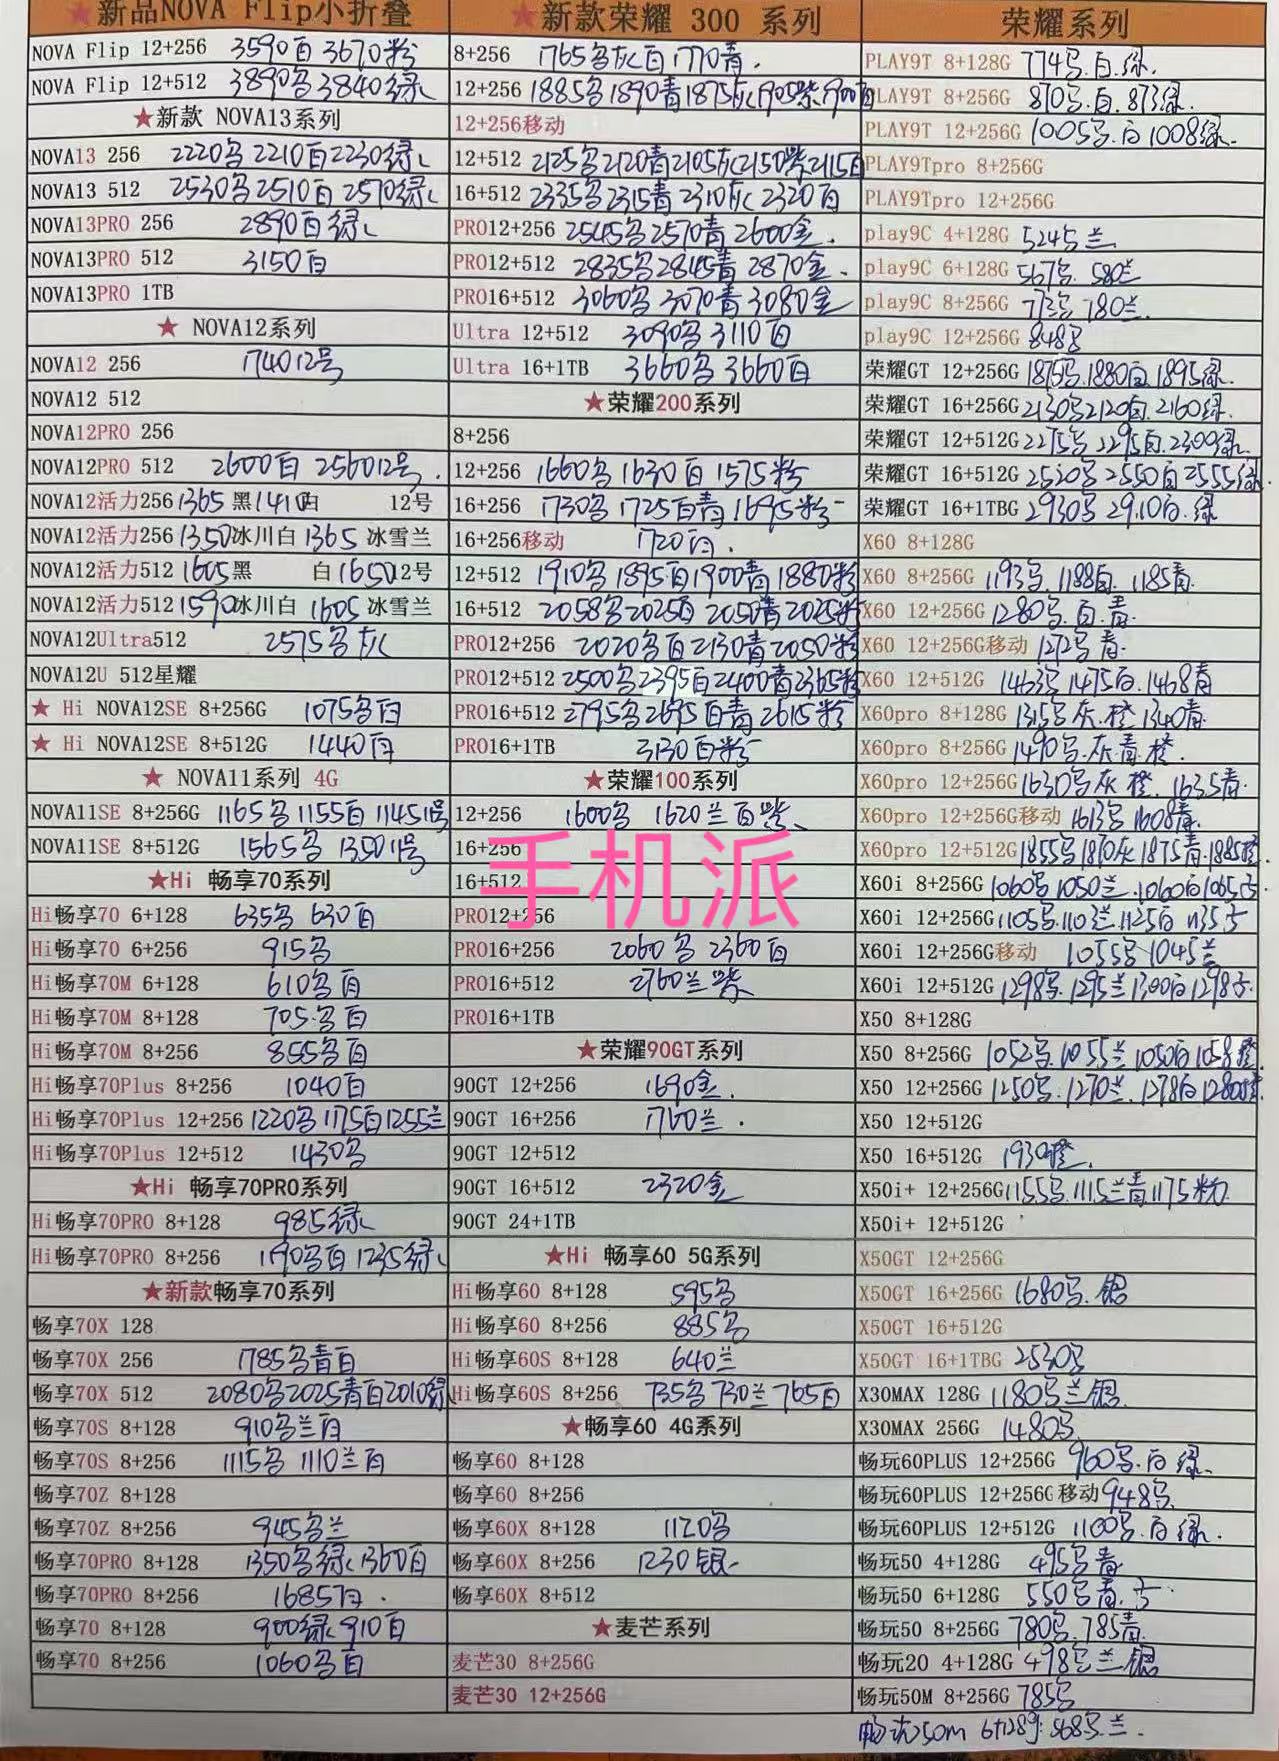 ★新品NOVA Flip小折叠
NOVA Flip 12+256 3590白 3670粉
NOVA Flip 12+512 3890乌 3840绿
★新款 NOVA13系列
NOVA13 256 2220乌 2210白 2230绿
NOVA13 512 2530乌 2510白 2570绿
NOVA13PRO 256 2890白绿
NOVA13PRO 512 3150白
NOVA13PRO 1TB
★ NOVA12系列
NOVA12 256 1740 12号
NOVA12 512
NOVA12PRO 256
NOVA12PRO 512 2600白 2560 12号.
NOVA12活力256 1365黑 1410白 12号
NOVA12活力256 1350冰川白 1365 冰雪兰
NOVA12活力512 1605黑 白1650 12号
NOVA12活力512 1590冰川白 1605 冰雪兰
NOVA12Ultra512 2575乌灰
NOVA12U 512星耀
★ Hi NOVA12SE 8+256G 1075乌白
★ Hi NOVA12SE 8+512G 1440白
★ NOVA11系列 4G
NOVA11SE 8+256G 1165乌 1155白 1145 11号
NOVA11SE 8+512G 1565乌 1350 11号
★Hi 畅享70系列
Hi畅享70 6+128 635乌 630白
Hi畅享70 6+256 915乌
Hi畅享70M 6+128 610乌白
Hi畅享70M 8+128 705乌白
Hi畅享70M 8+256 855乌白
Hi畅享70Plus 8+256 1040白
Hi畅享70Plus 12+256 1220乌 1175白 1255兰
Hi畅享70Plus 12+512 1430乌
★Hi 畅享70PRO系列
Hi畅享70PRO 8+128 985绿
Hi畅享70PRO 8+256 1190乌白 1235绿
★新款畅享70系列
畅享70X 128
畅享70X 256 1785乌青白
畅享70X 512 2080乌 2025青白 2010绿
畅享70S 8+128 910乌兰白
畅享70S 8+256 1115乌 1110兰白
畅享70Z 8+128
畅享70Z 8+256 945乌兰
畅享70PRO 8+128 1350乌绿 1360白
畅享70PRO 8+256 1685白.
畅享70 8+128 900绿 910白
畅享70 8+256 1060乌白
★新款荣耀 300 系列
8+256 1765乌灰白 1770青.
12+256 1885乌 1890青 1875灰 1905紫 1900白
12+256移动
12+512 2125乌 2120青 2105灰 2150紫 2115白
16+512 2335乌 2315青 2310灰 2320白
PRO12+256 2545乌 2570青 2600金.
PRO12+512 2835乌 2845青 2870金.
PRO16+512 3060乌 3070青 3080金
Ultra 12+512 3090乌 3110白
Ultra 16+1TB 3660乌 3660白
★荣耀200系列
8+256
12+256 1660乌 1630白 1575粉
16+256 1730乌 1725白青 1695粉
16+256移动 1720白.
12+512 1910乌 1895白 1900青 1880粉
16+512 2058乌 2025白 2050青 2025粉
PRO12+256 2020乌白 2130青 2050粉
PRO12+512 2500乌 2395白 2400青 2365粉
PRO16+512 2795乌 2695白青 2615粉
PRO16+1TB 3130白粉
★荣耀100系列
12+256 1600乌 1620兰白紫
16+256
16+512
PRO12+256
PRO16+256 2060乌 2360白
PRO16+512 2760兰紫
PRO16+1TB
★荣耀90GT系列
90GT 12+256 1690金.
90GT 16+256 1760兰.
90GT 12+512
90GT 16+512 2320金
90GT 24+1TB
★Hi 畅享60 5G系列
Hi畅享60 8+128 595乌
Hi畅享60 8+256 885乌
Hi畅享60S 8+128 640兰
Hi畅享60S 8+256 735乌 730兰 765白
★畅享60 4G系列
畅享60 8+128
畅享60 8+256
畅享60X 8+128 1120乌
畅享60X 8+256 1230银
畅享60X 8+512
★麦芒系列
麦芒30 8+256G
麦芒30 12+256G
荣耀系列
PLAY9T 8+128G 774乌.白.绿.
PLAY9T 8+256G 870乌.白.873绿.
PLAY9T 12+256G 1005乌.白 1008绿.
PLAY9Tpro 8+256G
PLAY9Tpro 12+256G
play9C 4+128G 524乌兰
play9C 6+128G 567乌. 580兰
play9C 8+256G 773乌 780兰.
play9C 12+256G 848乌
荣耀GT 12+256G 1875乌.1880白 1895绿.
荣耀GT 16+256G 2130乌 2120白.2160绿.
荣耀GT 12+512G 2275乌.2295白.2309绿.
荣耀GT 16+512G 2520乌 2550白 2555绿.
荣耀GT 16+1TBG 2930乌 2910白.绿
X60 8+128G
X60 8+256G 1193乌.1188白. 1185青.
X60 12+256G 1280乌.白.青.
X60 12+256G移动 1272乌青.
X60 12+512G 1463乌 1475白.1468青
X60pro 8+128G 1315乌灰.橙 1340青
X60pro 8+256G 1490乌.灰.青.橙.
X60pro 12+256G 1630乌灰 橙. 1635青.
X60pro 12+256G移动 1613乌 1608青.
X60pro 12+512G 1855乌 1870灰 1875青.1885橙.
X60i 8+256G 1060乌 1050兰.1060白 1065方
X60i 12+256G 1105乌.1103兰.1125白 1135方
X60i 12+256G移动 1055乌 1045兰
X60i 12+512G 1298乌.1295兰 1300白 1298方.
X50 8+128G
X50 8+256G 1052乌.1055兰 1050白 1058橙
X50 12+256G 1250乌.1270兰.1278白 1280橙.
X50 12+512G
X50 16+512G 1930橙.
X50i+ 12+256G 1155乌.1115兰青.1175粉
X50i+ 12+512G
X50GT 12+256G
X50GT 16+256G 1680乌.银
X50GT 16+512G
X50GT 16+1TBG 2530乌
X30MAX 128G 1180乌兰银.
X30MAX 256G 1480乌
畅玩60PLUS 12+256G 960乌.白 绿.
畅玩60PLUS 12+256G移动 948乌
畅玩60PLUS 12+512G 1100乌.白绿.
畅玩50 4+128G 495乌青
畅玩50 6+128G 550乌青.方.
畅玩50 8+256G 780乌.785青.
畅玩20 4+128G 498乌兰银
畅玩50M 8+256G 785乌
畅玩50m 6+128g: 568乌.兰.
手机派